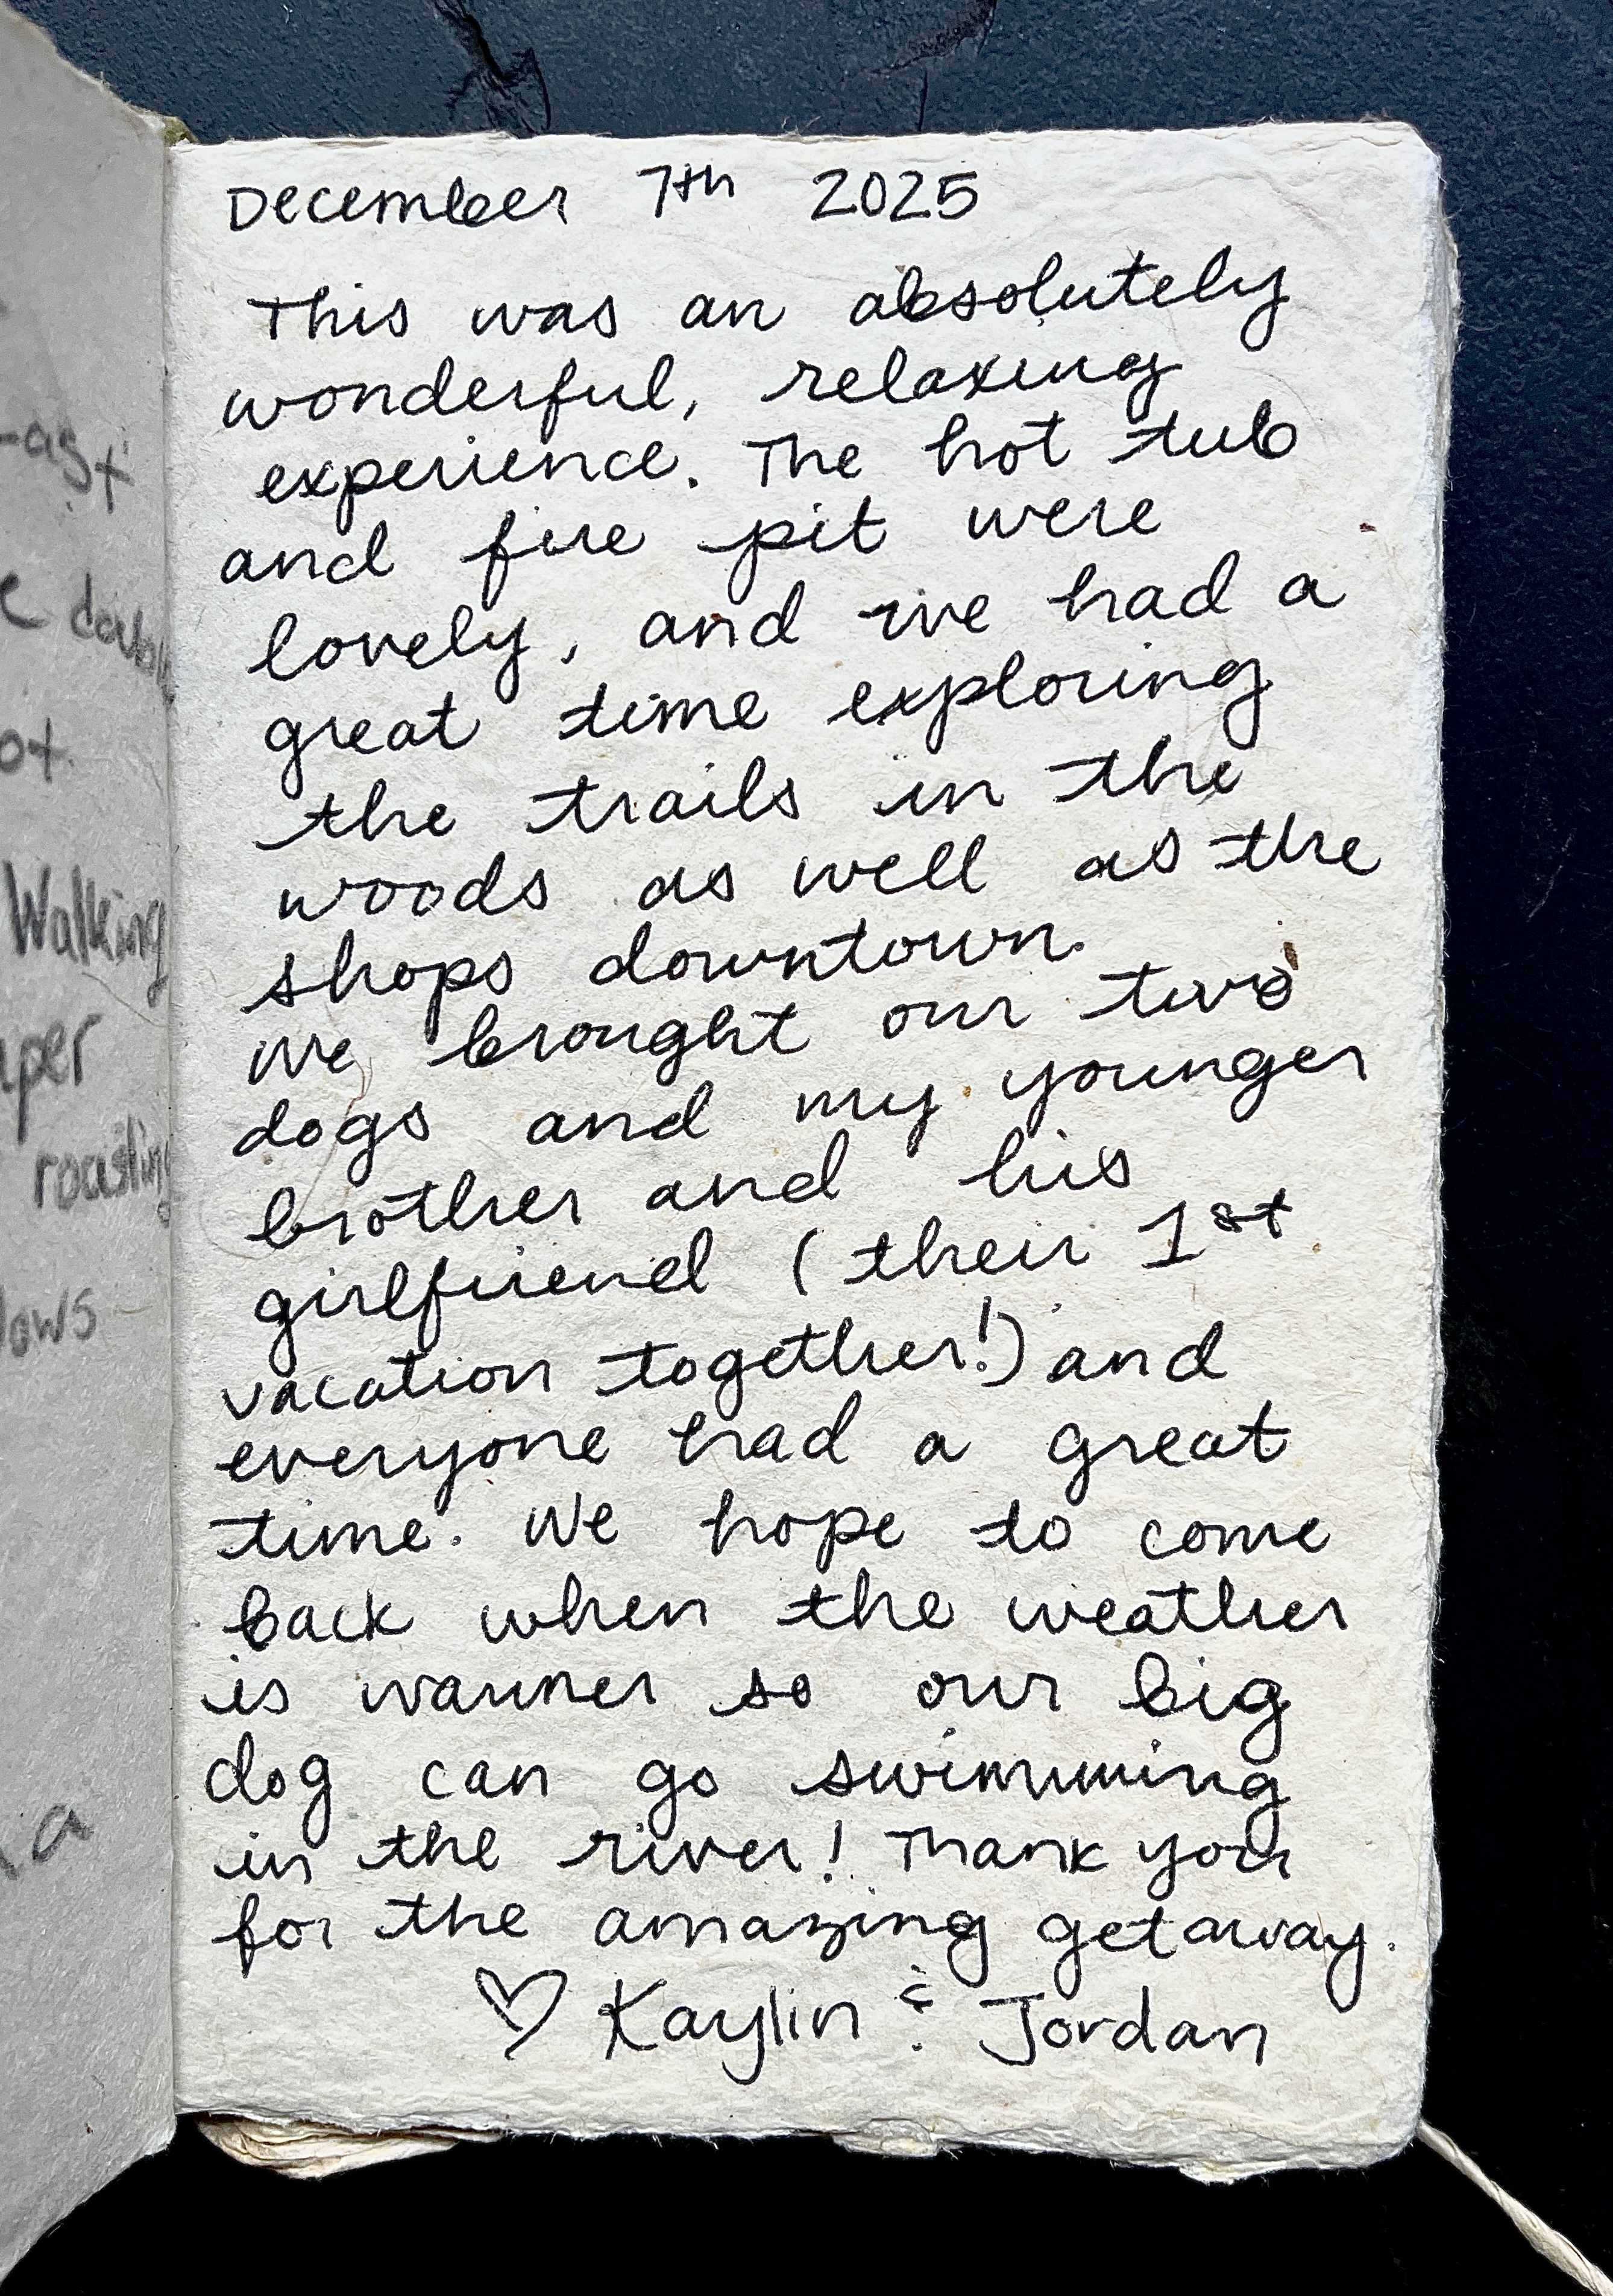 December 7th 2025
This was an absolutely
wonderful, relaxing
experience. The hot tub
and fire pit were
lovely, and we had a
great time exploring
the trails in the
woods as well as the
shops downtown.
We brought our two
dogs and my younger
brother and his
girlfriend (their 1st
vacation together!) and
everyone had a great
time. We hope to come
back when the weather
is warmer so our big
dog can go swimming
in the river! Thank you
for the amazing getaway.
♡ Kaylin & Jordan
Walking
roasting